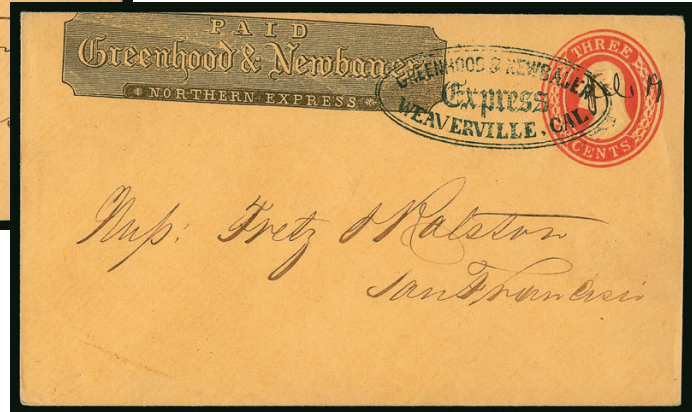 PAID
Greenhood & Newbauer
NORTHERN EXPRESS
GREENHOOD & NEWBAUER
Express
WEAVERVILLE, CAL.
THREE
CENTS
Mess: Fretz & Ralston
San Francisco